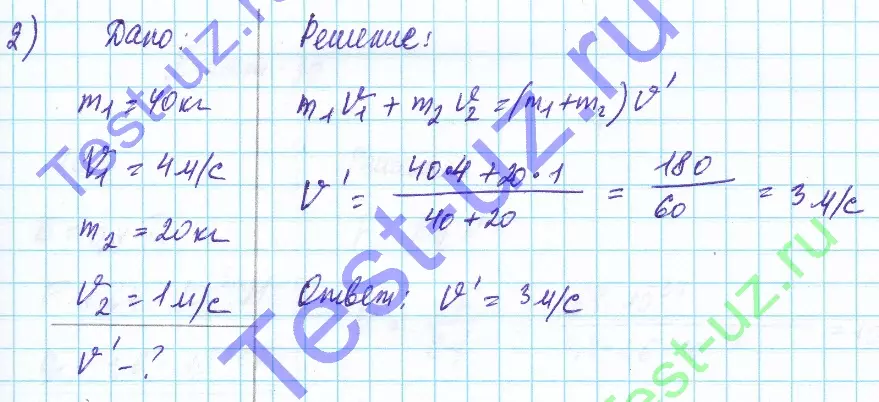 2) Дано:
m₁ = 40 кг
V₁ = 4 м/с
m₂ = 20 кг
V₂ = 1 м/с
V' - ?
Решение:
m₁V₁ + m₂V₂ = (m₁ + m₂)V'
V' = (40·4 + 20·1)/(40 + 20) = 180/60 = 3 м/с
Ответ: V' = 3 м/с
Test-uz.ru
Test-uz.ru
Test-uz.ru